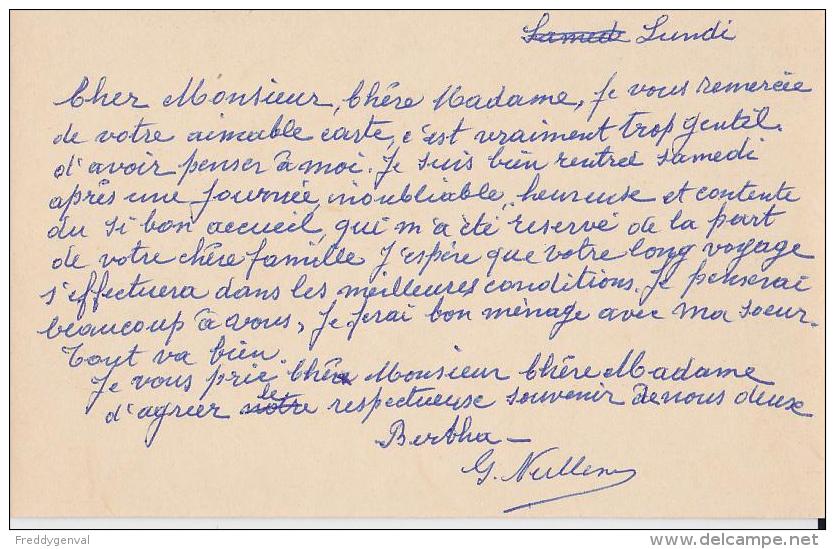 Samedi Lundi
Cher Monsieur, Chére Madame, Je vous remercie
de votre aimable carte, c'est vraiment trop gentil.
d'avoir penser à moi. Je suis bien rentrée samedi
aprés une journée, inoubliable, heureuse et contente
du si bon accueil, qui m'a été reservé de la part
de votre chére famille J'espére que votre long voyage
s'effectuera dans les meilleures conditions. Je penserai
beaucoup à vous, Je ferai bon ménage avec ma soeur.
Tout va bien.
Je vous prie Chér Monsieur Chére Madame
d'agréer notre le respectueuse souvenir de nous deux
Bertha -
G. Nullens
Freddygenval
delcampe.net